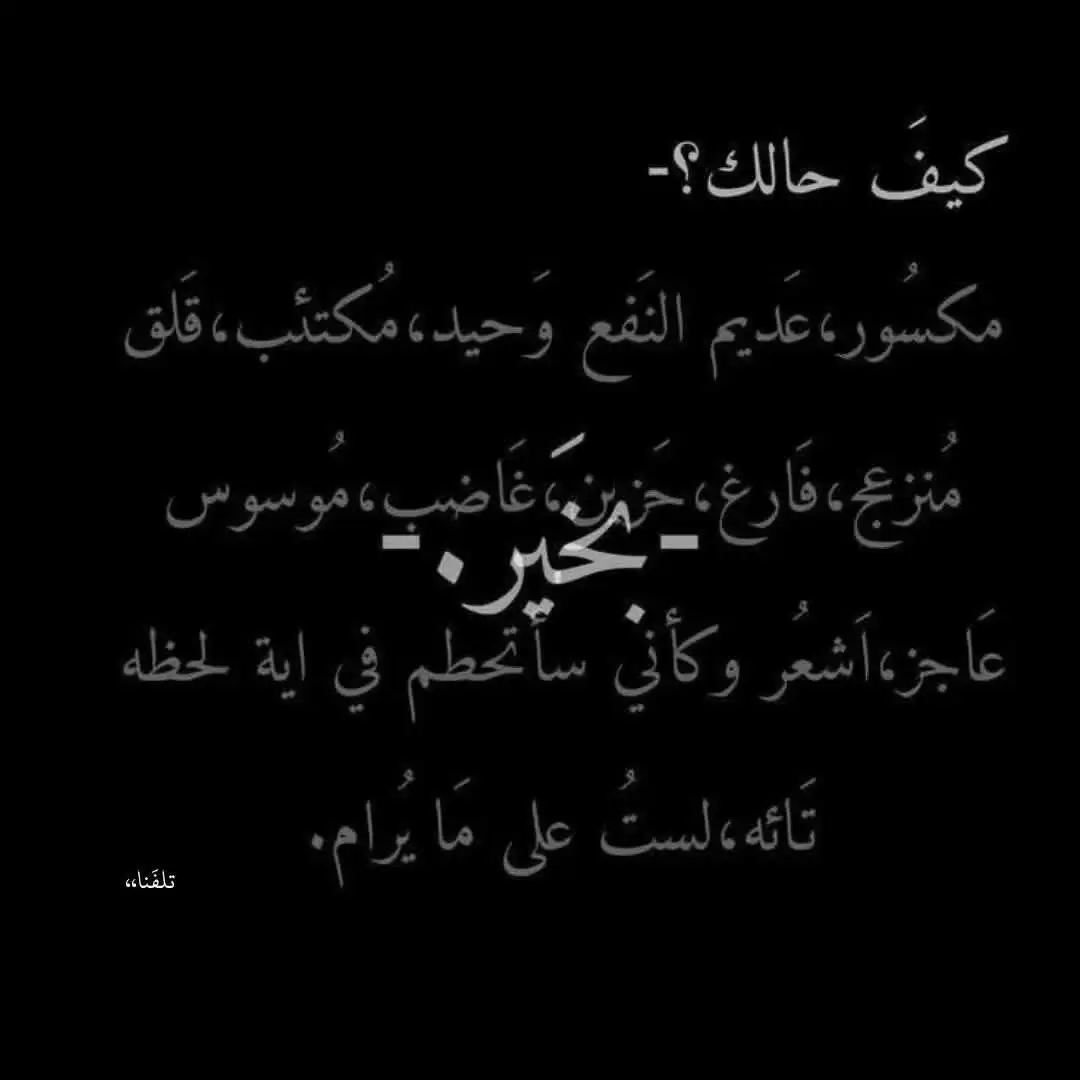 كيفَ حالك؟-
مكسُور،عَديم النَفع وَحيد،مُكتئب،قَلق
مُنزعج،فَارغ،حَزين،غَاضب،مُوسوس
-بَخير.-
عَاجز،اَشعُر وكأني سأتحطم في اية لحظه
تَائه،لستُ على مَا يُرام.
تلفَنا،،